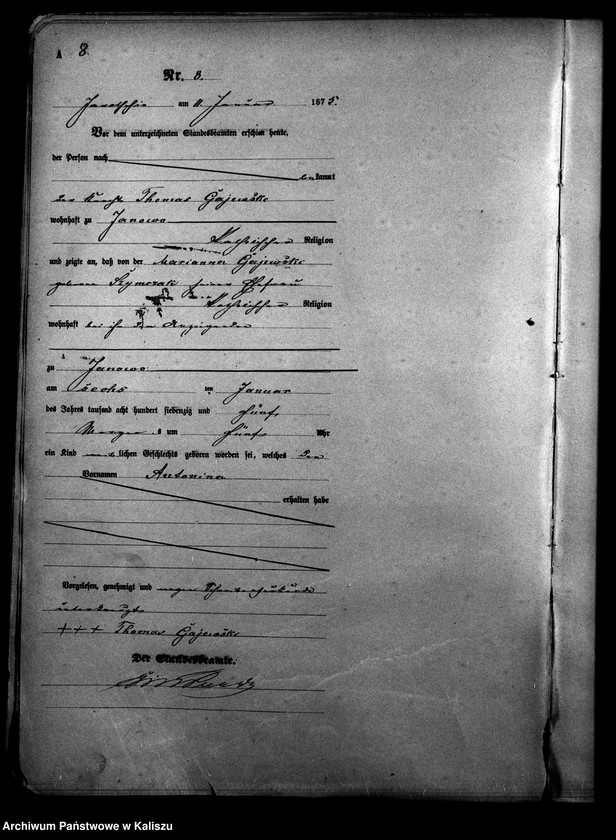 A 8
Nr. 8.
am Januar 1875.
Vor dem unterzeichneten Standesbeamten erschien heute,
der Person nach
bekannt
der Knecht Thomas Gajewski
wohnhaft zu Janowo
katholischer Religion
und zeigte an, daß von der Marianna Gajewski
geborene Szymczak seiner Ehefrau
katholischer Religion
wohnhaft bei ihm dem Anzeigenden
zu Janowo
am sechs ten Januar
des Jahres tausend acht hundert siebenzig und fünf
Morgens um fünf Uhr
ein Kind weiblichen Geschlechts geboren worden sei, welches den
Vornamen Antonina
erhalten habe
Vorgelesen, genehmigt und wegen
unterkreuzt
+++ Thomas Gajewski
Der Standesbeamte.
Archiwum Państwowe w Kaliszu